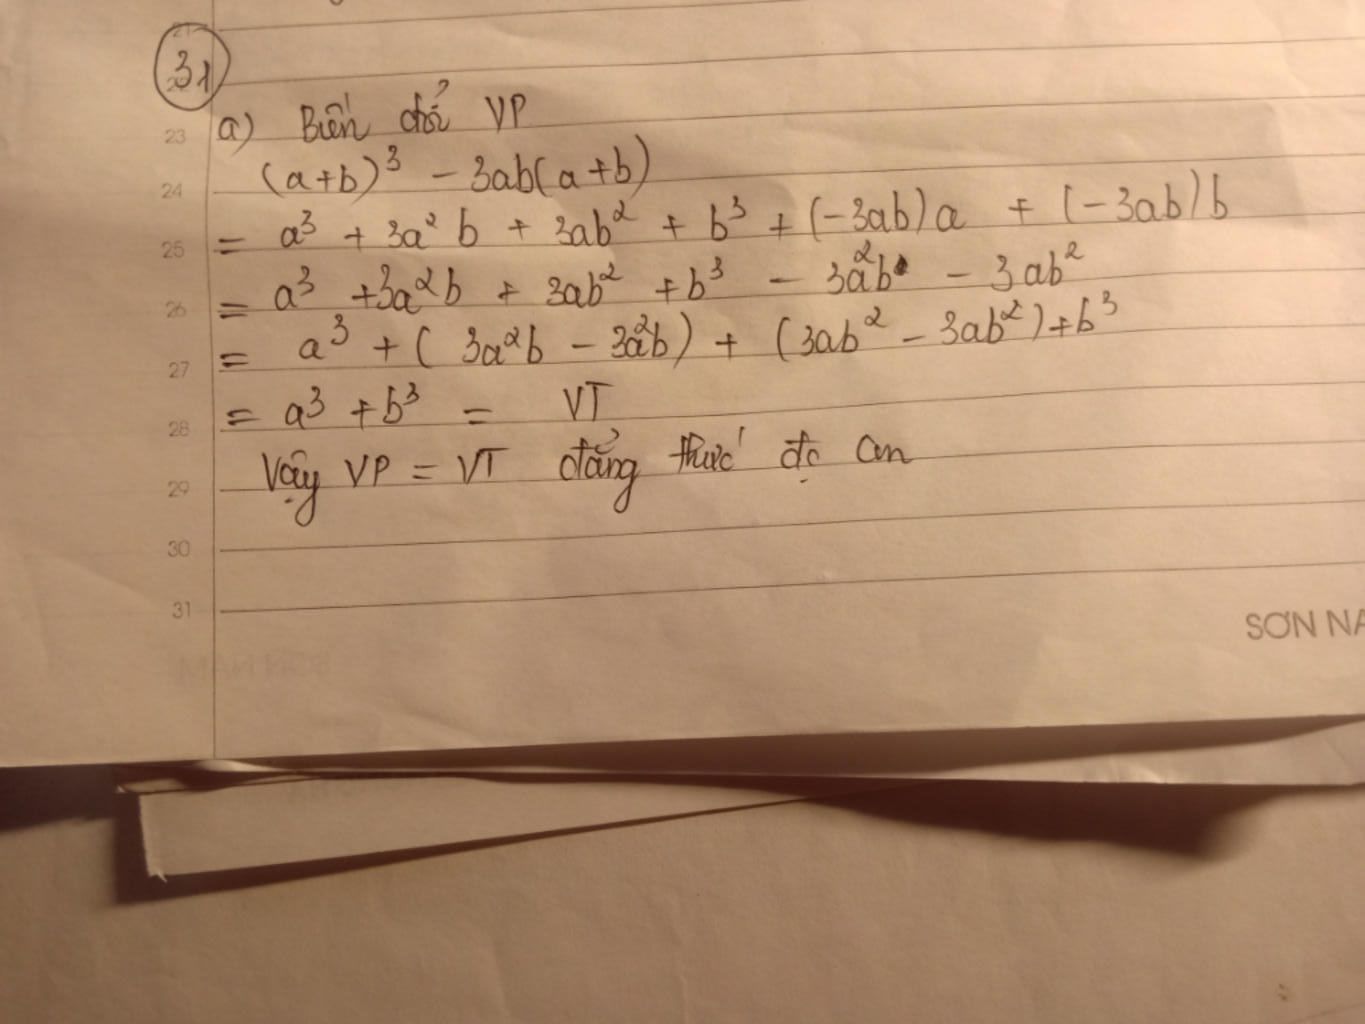 31
a) Biến đổi VP
23
(a+b)³ - 3ab(a+b)
24
= a³ + 3a²b + 3ab² + b³ + (-3ab)a + (-3ab)b
25
= a³ + 3a²b + 3ab² + b³ - 3a²b - 3ab²
26
= a³ + (3a²b - 3a²b) + (3ab² - 3ab²) + b³
27
= a³ + b³ = VT
28
Vậy VP = VT đẳng thức đc cm
29
30
31
SƠN NA